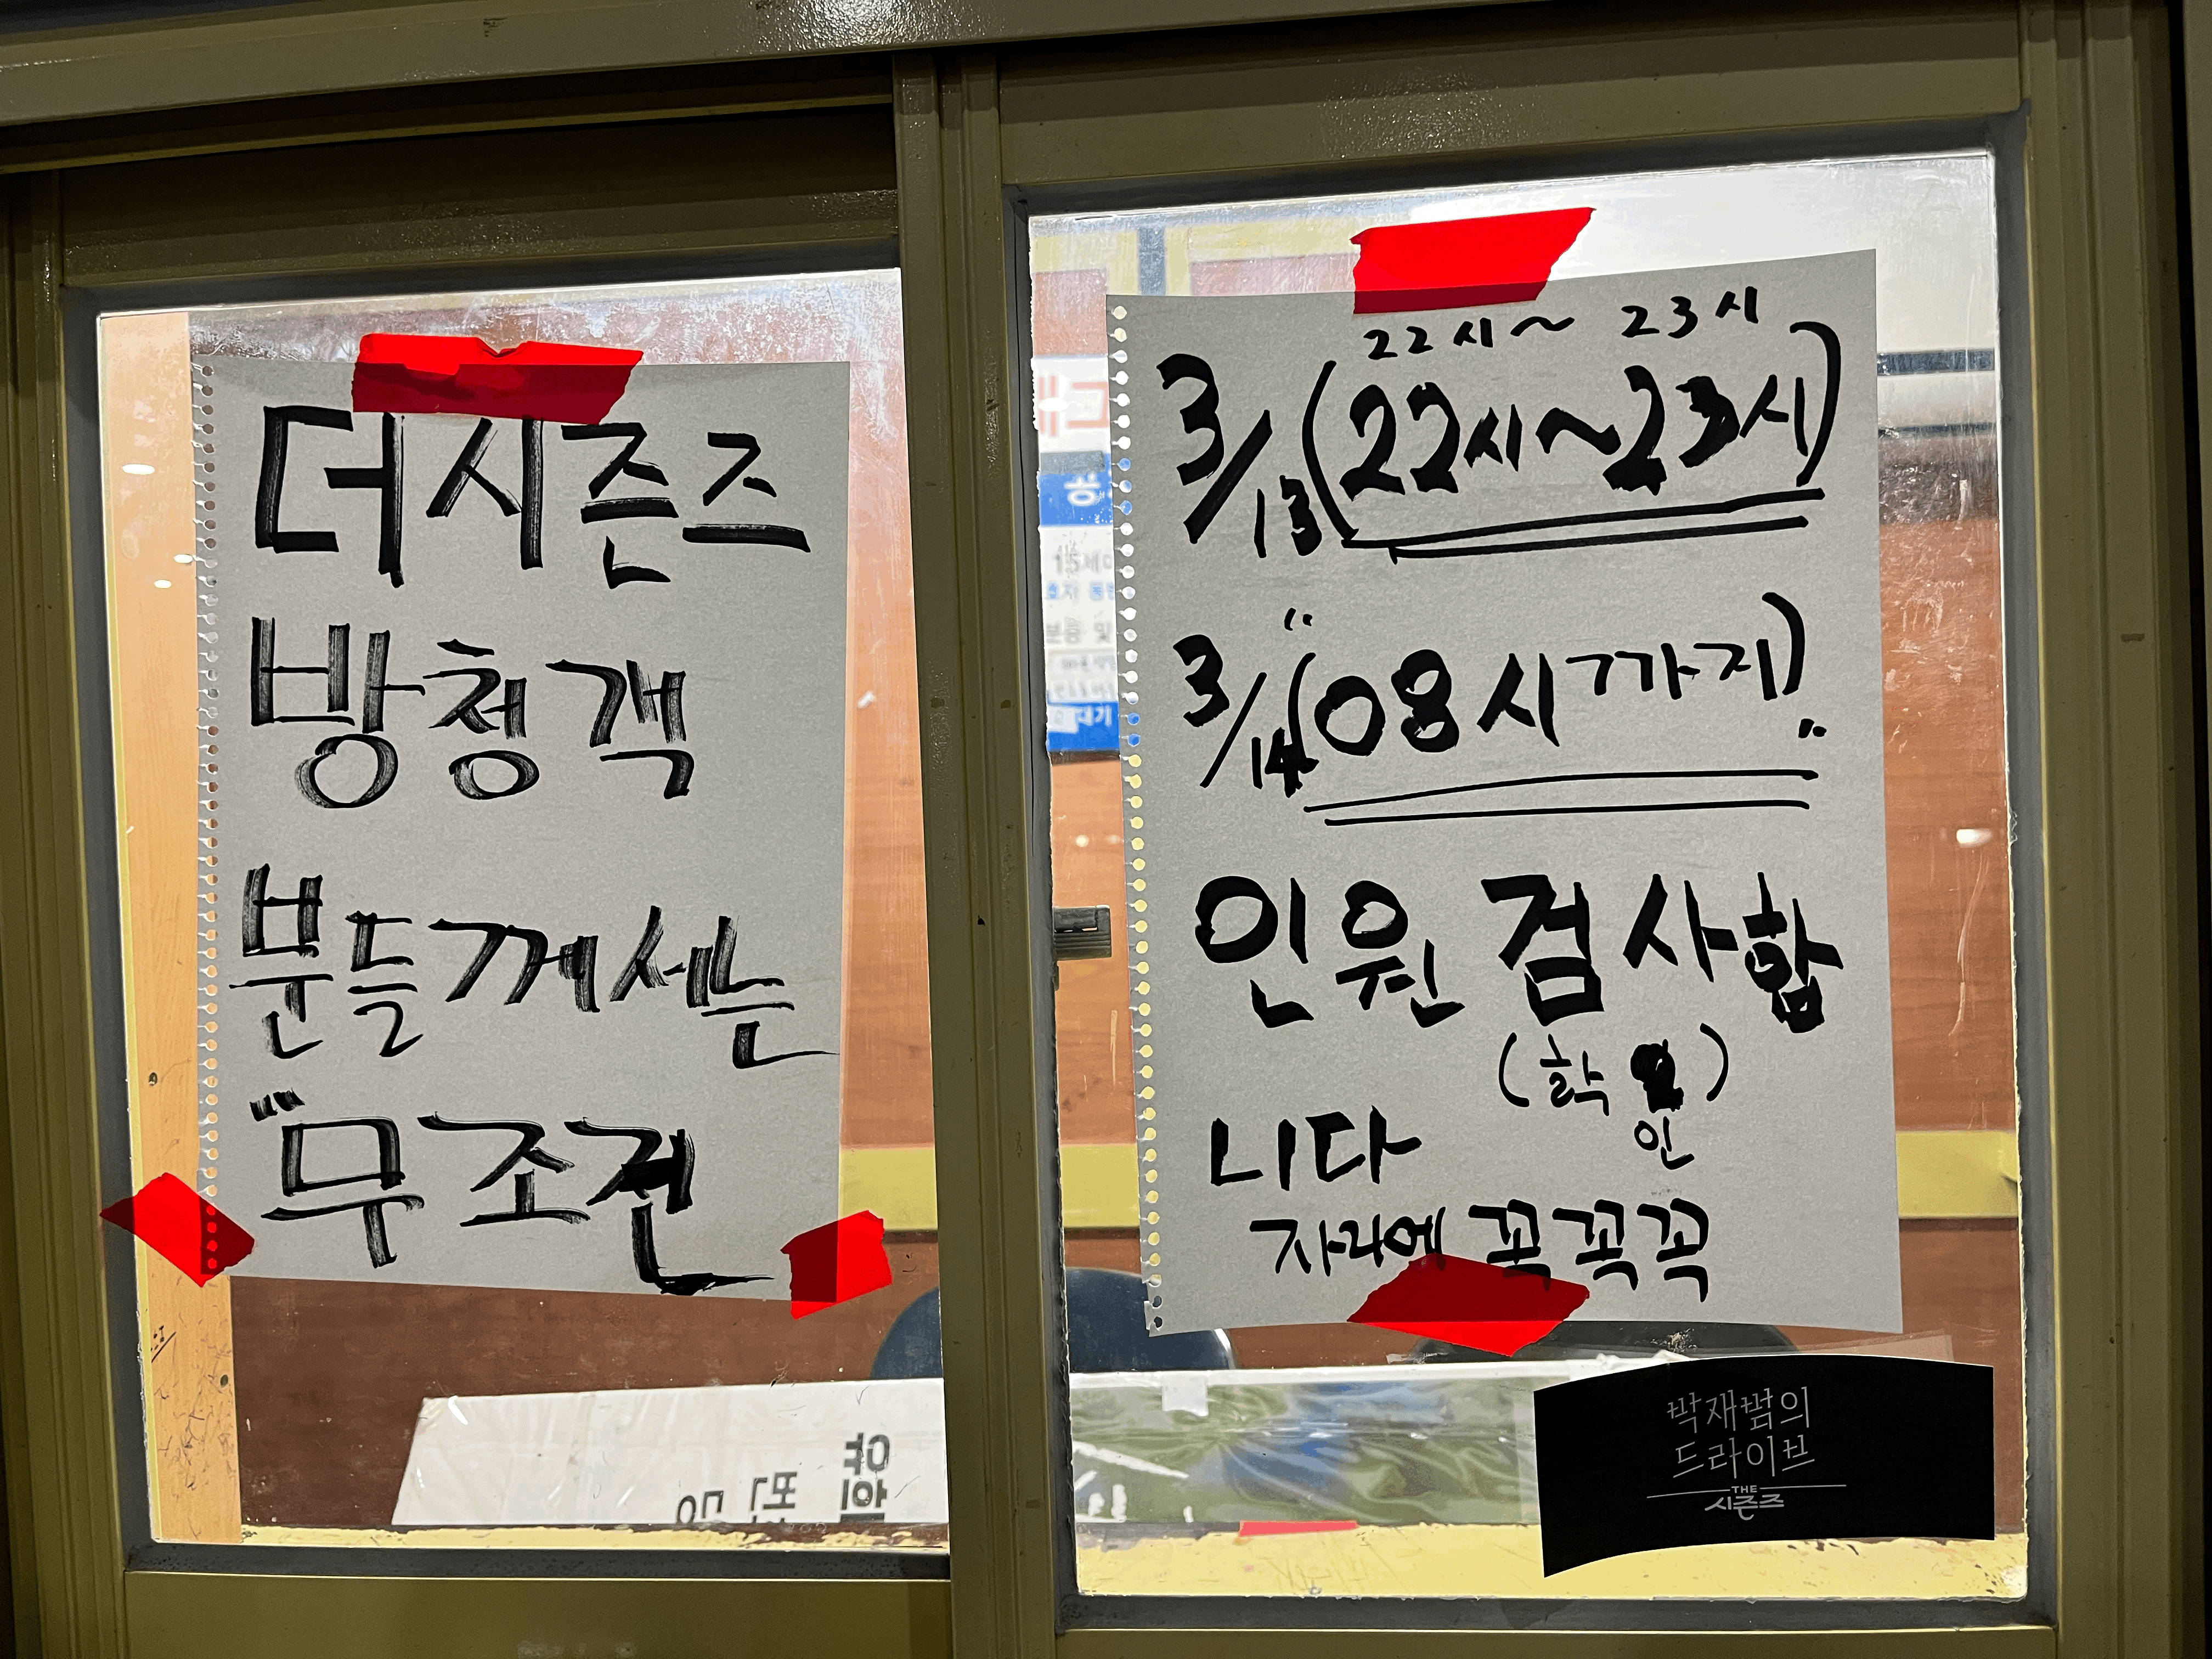 더시즌즈
방청객
분들께서는
"무조건
22시~ 23시
3/13 (22시~23시)
3/14 (08시까지)"
인원 검사합
(확인)
니다
자리에 꼭꼭꼭
박재범의
드라이브
THE
시즌즈
15세